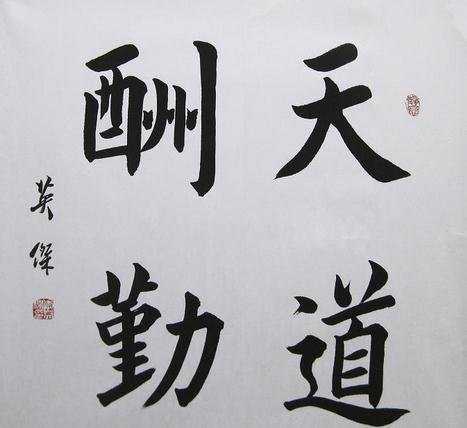 天道
酬勤
英傑